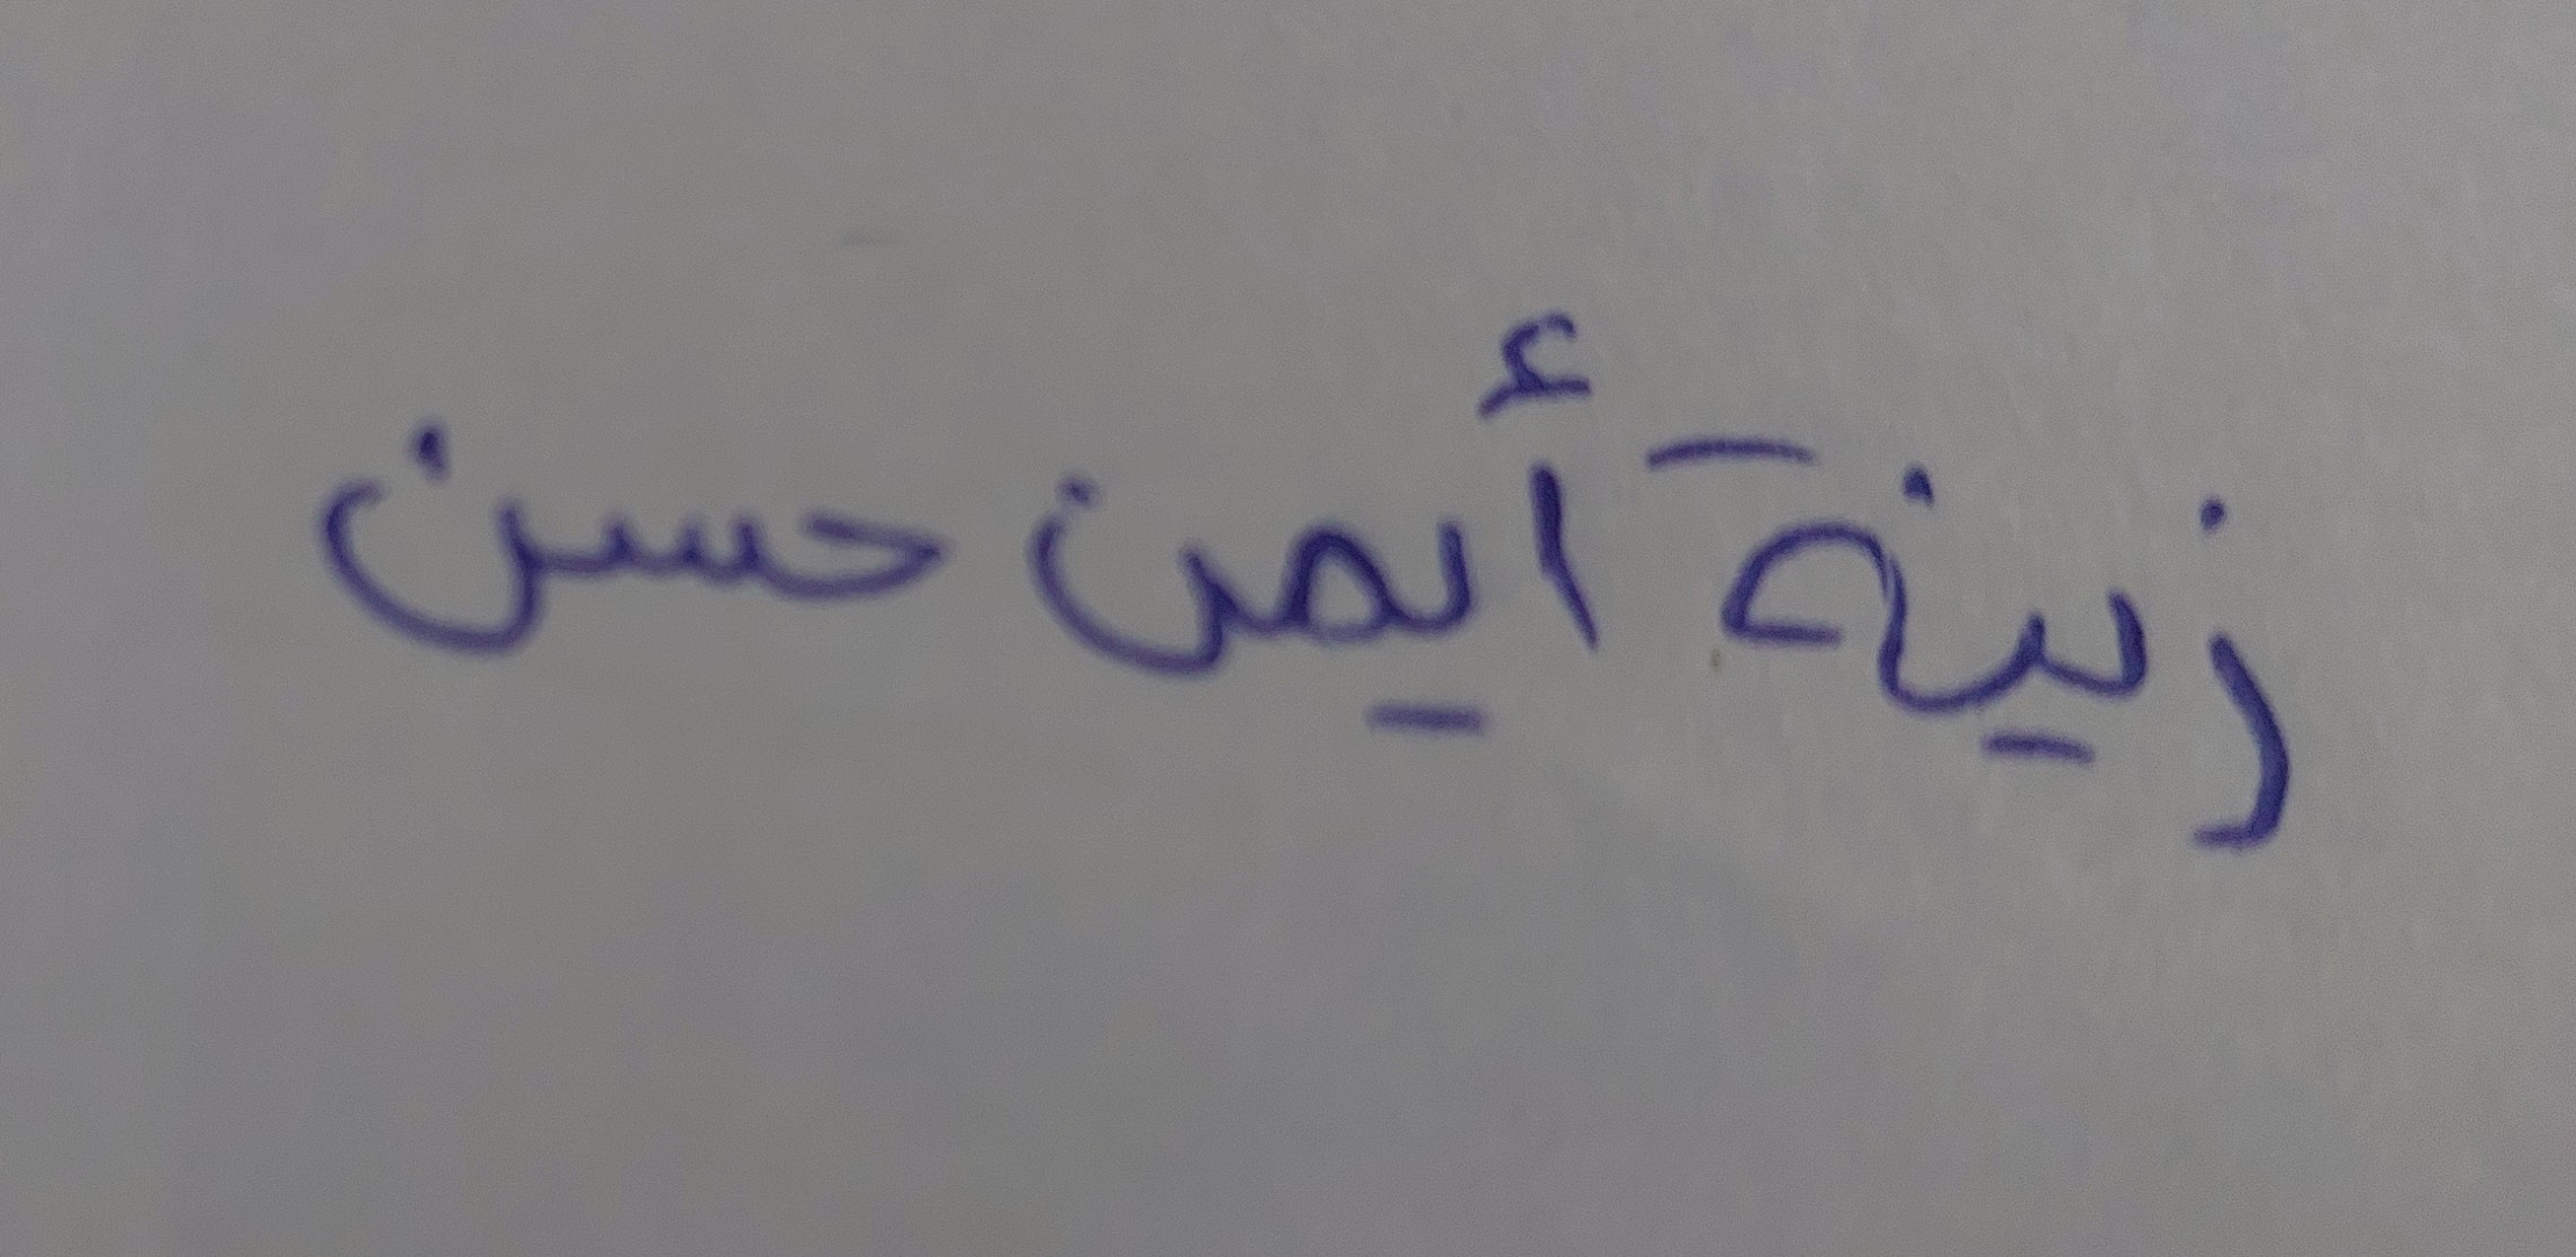 زينة أيمن حسن